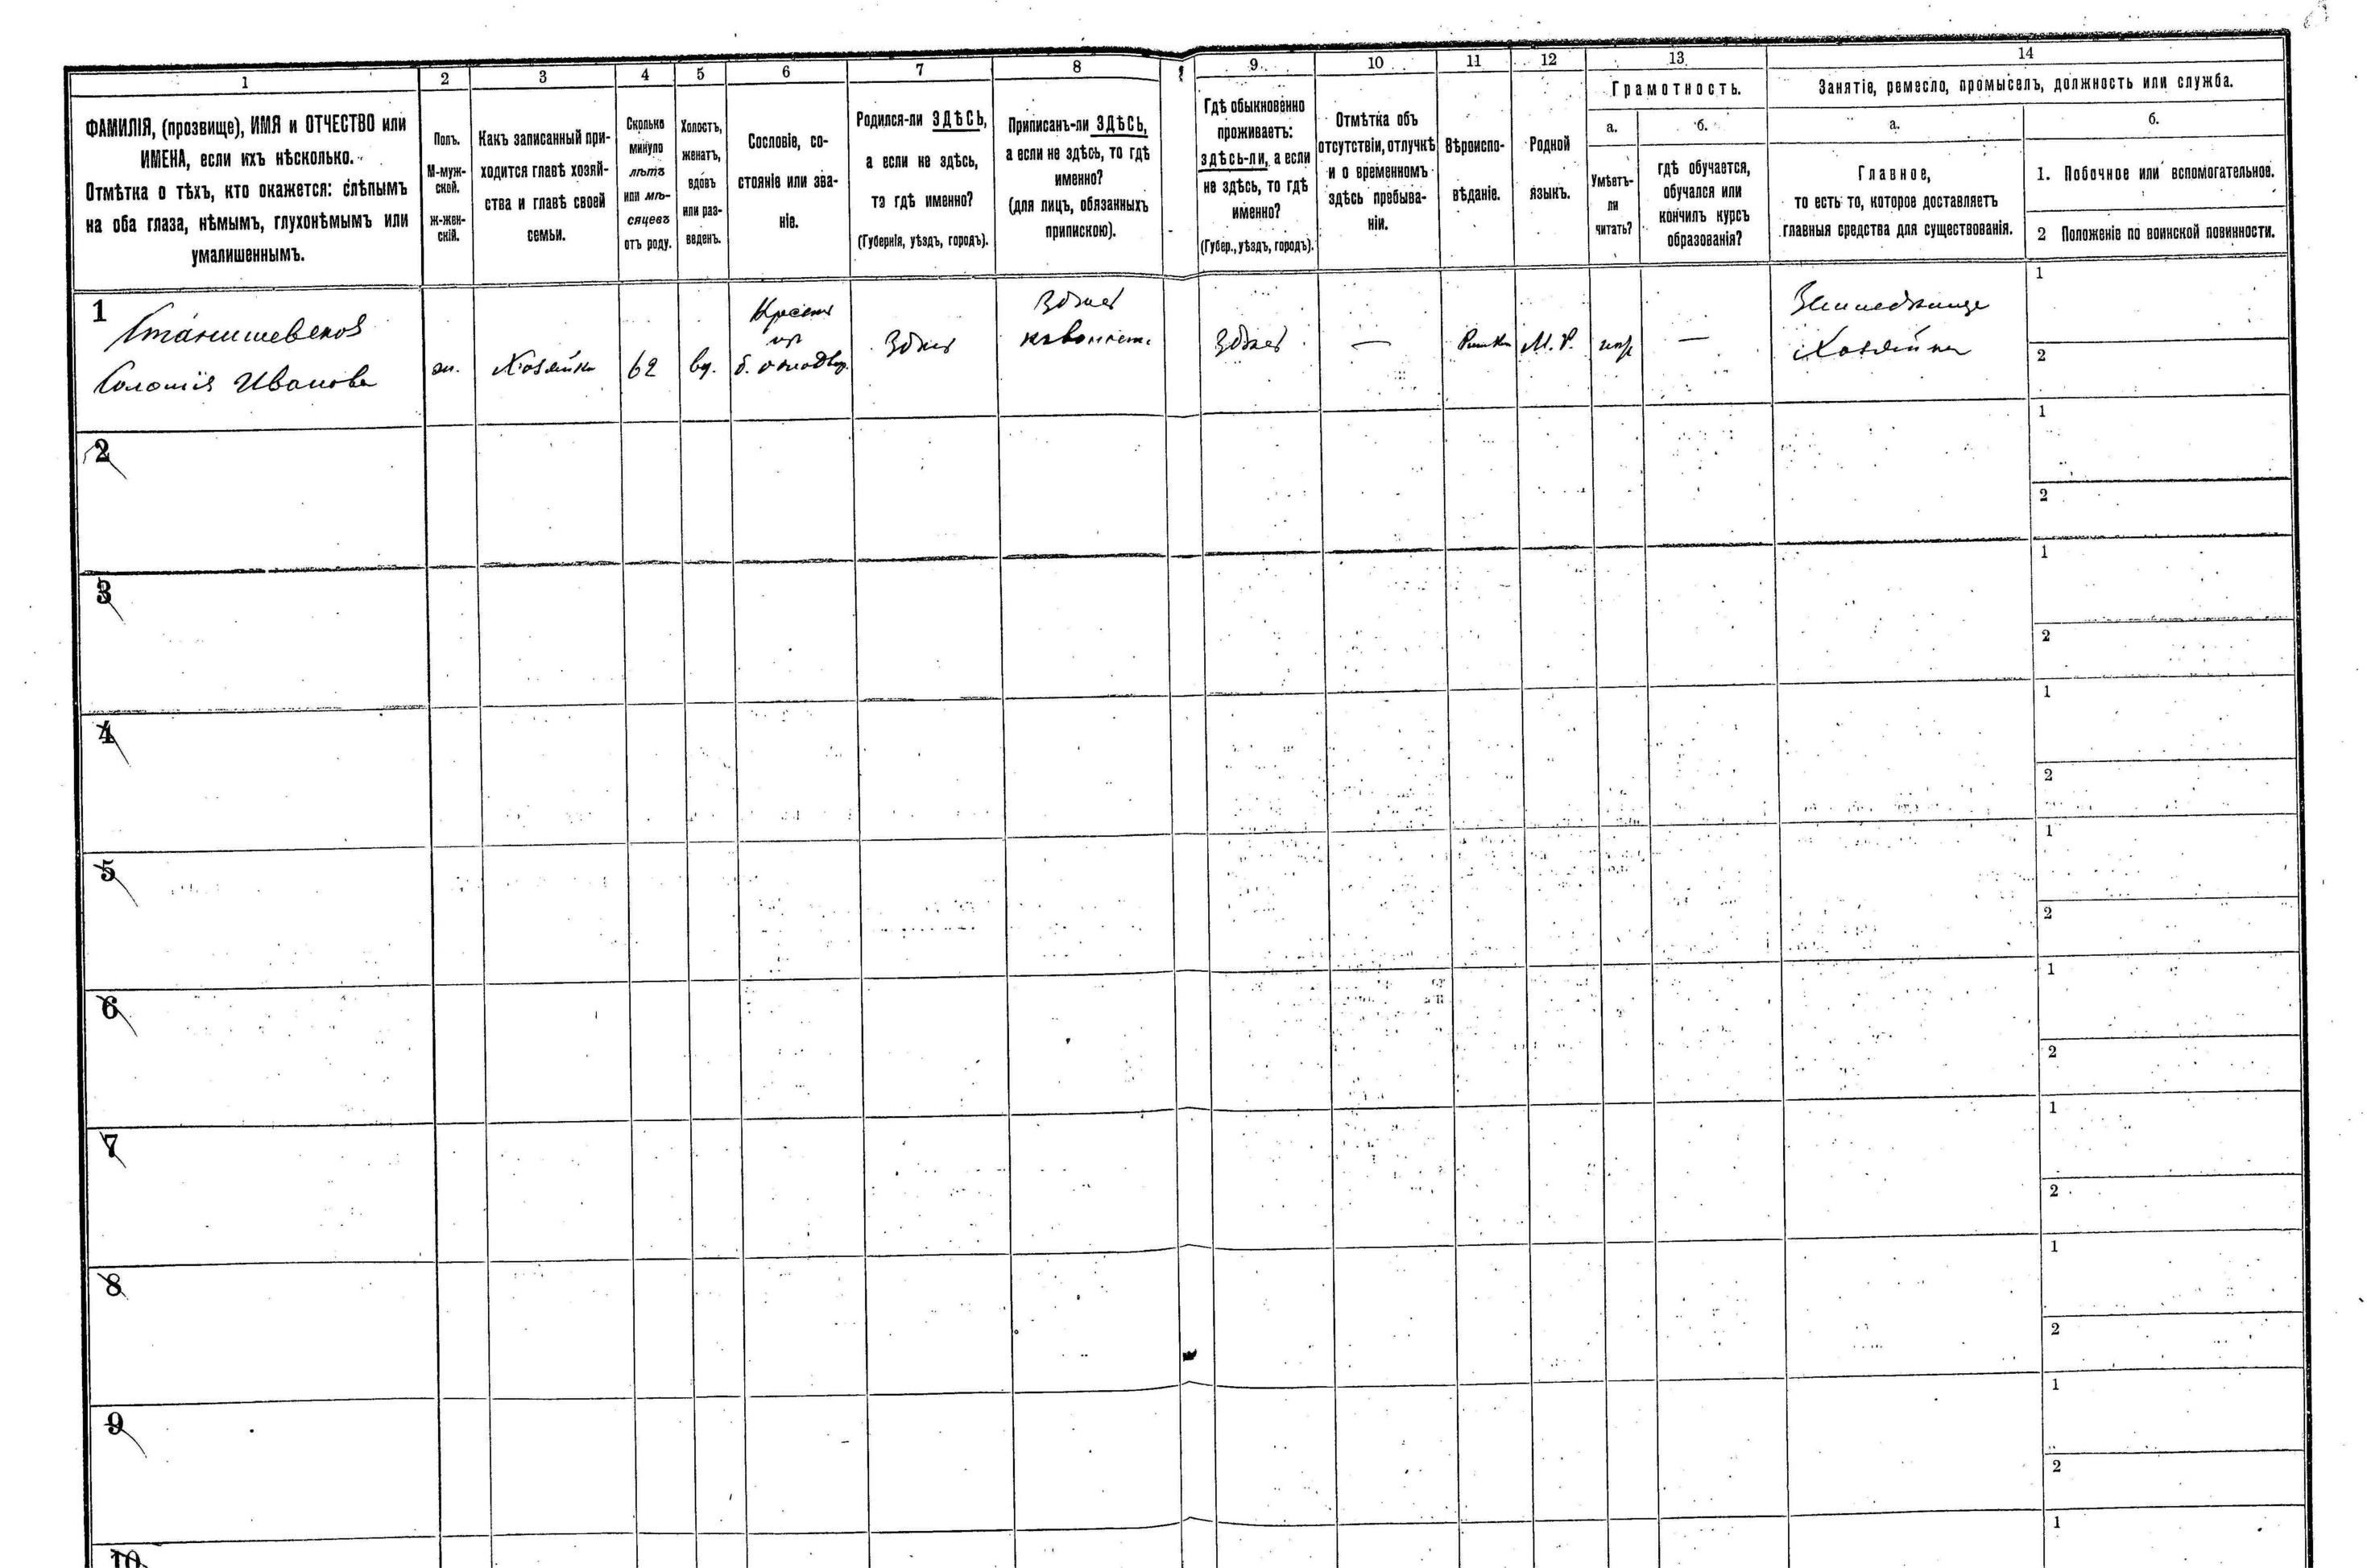 1 2 3 4 5 6 7 8 9 10 11 12 13 14
ФАМИЛІЯ, (прозвище), ИМЯ и ОТЧЕСТВО или
ИМЕНА, если ихъ нѣсколько.
Отмѣтка о тѣхъ, кто окажется: слѣпымъ
на оба глаза, нѣмымъ, глухонѣмымъ или
умалишеннымъ.
Полъ.
М-муж-
ской.
Ж-жен-
скій.
Какъ записанный при-
ходится главѣ хозяй-
ства и главѣ своей
семьи.
Сколько
минуло
лѣтъ
или мѣ-
сяцевъ
отъ роду.
Холостъ,
женатъ,
вдовъ
или раз-
веденъ.
Сословіе, со-
стояніе или зва-
ніе.
Родился-ли ЗДѢСЬ,
а если не здѣсь,
то гдѣ именно?
(Губернія, уѣздъ, городъ).
Приписанъ-ли ЗДѢСЬ,
а если не здѣсь, то гдѣ
именно?
(для лицъ, обязанныхъ
припискою).
Гдѣ обыкновенно
проживаетъ:
здѣсь-ли, а если
не здѣсь, то гдѣ
именно?
(Губер., уѣздъ, городъ).
Отмѣтка объ
отсутствіи, отлучкѣ
и о временномъ
здѣсь пребыва-
ніи.
Вѣроиспо-
вѣданіе.
Родной
языкъ.
Грамотность.
а.
Умѣетъ-
ли
читать?
б.
гдѣ обучается,
обучался или
кончилъ курсъ
образованія?
Занятіе, ремесло, промыселъ, должность или служба.
а.
Главное,
то есть то, которое доставляетъ
главныя средства для существованія.
б.
1. Побочное или вспомогательное.
2 Положеніе по воинской повинности.
1
Соломія Иванова
ж.
Хозяйка
62
вд.
б. однодвор.
Здѣсь
Здѣсь
Здѣсь
—
М. Р.
—
Хозяйка
1
2
2
1
2
3
1
2
4
1
2
5
1
2
6
1
2
7
1
2
8
1
2
9
1
2
10
1